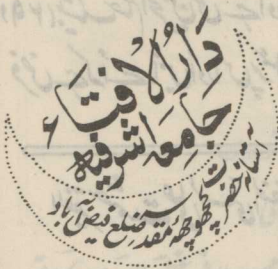 دَارُ الْاِفْتَاء
جَامِعَہ اَشْرَفِیہ
آستانہ حضرت کچھوچھہ مقدسہ ضلع فیض آباد